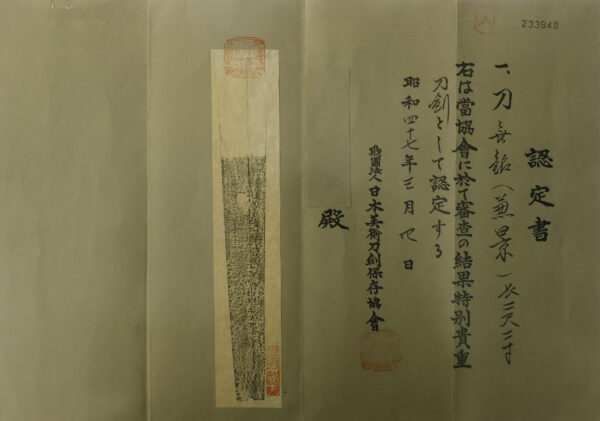 233948
認定書
一、刀 無銘(兼景) 長二尺二寸
右は當協會に於て審査の結果特別貴重
刀剣として認定する
昭和四十七年三月九日
財團法人日本美術刀剣保存協會
殿